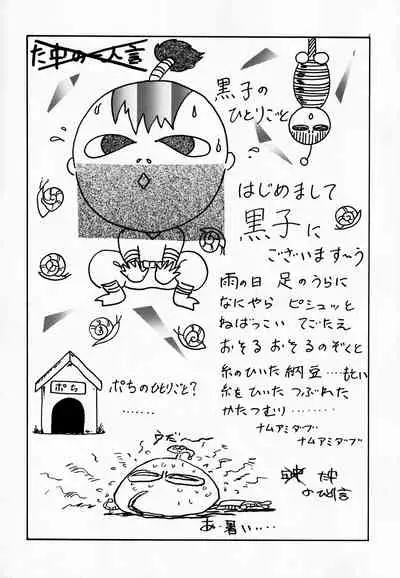 た中の一人言
黒子の
ひとりごと
はじめまして
黒子に
ございます〜う
雨の日 足のうらに
なにやら ピシュッと
ねばっこい てごたえ
おそる おそるのぞくと
糸のひいた納豆‥‥もとい
糸をひいた つぶれた
かたつむり………
ナムアミダブ
ナムアミダブ
ポち
ポちのひとりごと?
‥‥‥
うだ〜
あ‥暑い‥‥
た中
の
言